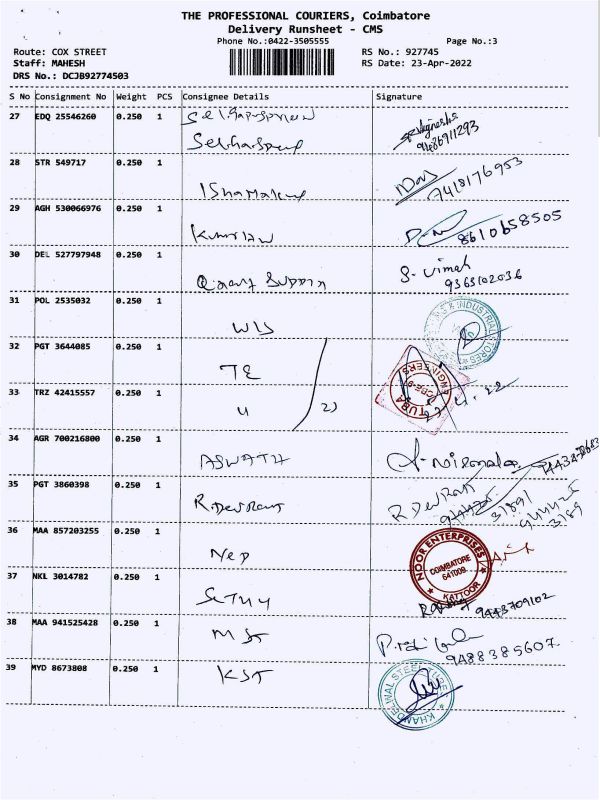 THE PROFESSIONAL COURIERS, Coimbatore
Delivery Runsheet - CMS
Phone No.:0422-3505555 Page No.:3
Route: COX STREET RS No.: 927745
Staff: MAHESH RS Date: 23-Apr-2022
DRS No.: DCJB92774503
S No Consignment No Weight PCS Consignee Details Signature
27 EDQ 25546260 0.250 1
9486911293
28 STR 549717 0.250 1
7418176953
29 AGH 530066976 0.250 1
8610658505
30 DEL 527797948 0.250 1
S. Vimal
9363102036
31 POL 2535032 0.250 1
& INDUSTRIAL STORES
32 PGT 3644085 0.250 1 TE
ENGINEERS
33 TRZ 42415557 0.250 1 4 2)
34 AGR 700216800 0.250 1 ASWATH
35 PGT 3860398 0.250 1 R. Devraj R Devraj
31891
36 MAA 857203255 0.250 1 NEP
NOOR ENTERPRISES
COIMBATORE
641009
KATTOOR
37 NKL 3014782 0.250 1 Sethu
9443709102
38 MAA 941525428 0.250 1 MST
9488385607
39 MYD 8673808 0.250 1 KST
KHANDELWAL STEEL